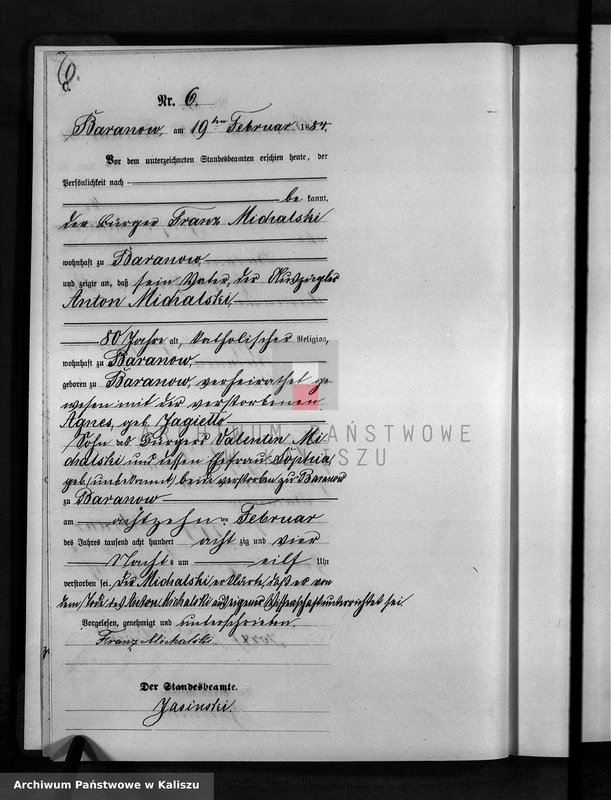 6.
C.
Nr. 6.
Baranow, am 19ten Februar 1884.
Vor dem unterzeichneten Standesbeamten erschien heute, der
Persönlichkeit nach
be kannt,
der Bürger Franz Michalski
wohnhaft zu Baranow,
und zeigte an, daß sein Vater, der Auszügler
Anton Michalski,
80 Jahre alt, katholischer Religion,
wohnhaft zu Baranow,
geboren zu Baranow, verheirathet ge
wesen mit der verstorbenen
Agnes, geb. Jagiello
Sohn des Bürgers Valentin Mi
chalski und dessen Ehefrau Sophia,
geb. (unbekannt) beide verstorben zu Baranow
zu Baranow
am achtzehn ten Februar
des Jahres tausend acht hundert acht zig und vier
Nachts um eilf Uhr
verstorben sei. Der Michalski erklärte, daß er von
dem Tode des Anton Michalski aus eigener Wissenschaft unterrichtet sei.
Vorgelesen, genehmigt und unterschrieben.
Franz Michalski.
Der Standesbeamte.
Jasinski.
ARCHIWUM PAŃSTWOWE
W KALISZU
Archiwum Państwowe w Kaliszu